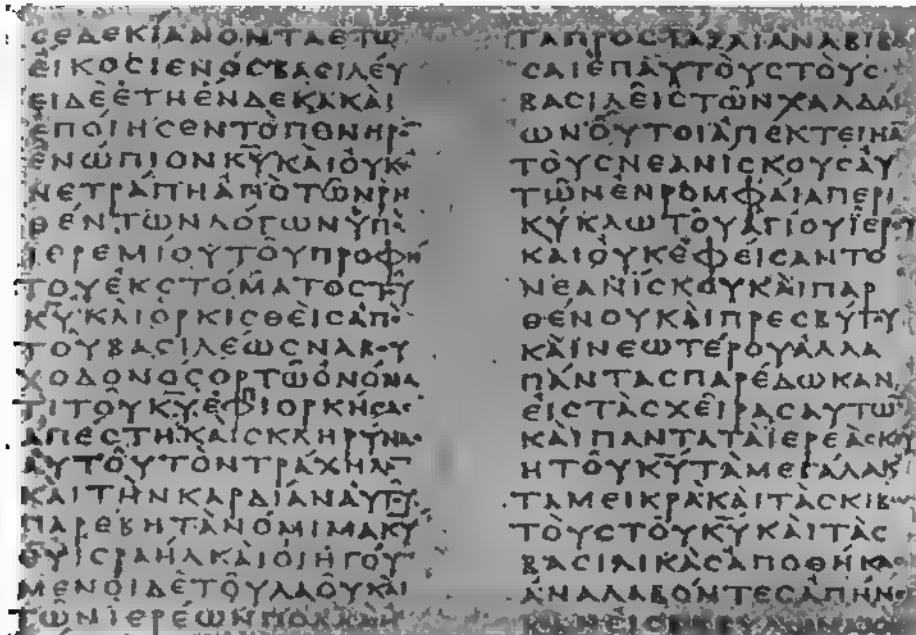 ϹΕΔΕΚΙΑΝΟΝΤΑΕΤΩ
ΕΙΚΟϹΙΕΝΟϹΒΑϹΙΛΕΥ
ΕΙΔΕΕΤΗΕΝΔΕΚΑΚΑΙ
ΕΠΟΙΗϹΕΝΤΟΠΟΝΗΡ
ΕΝΩΠΙΟΝΚΥΚΑΙΟΥΚ
ΝΕΤΡΑΠΗΑΠΟΤΩΝΡΗ
ΘΕΝΤΩΝΛΟΓΩΝΥΠ
ΙΕΡΕΜΙΟΥΤΟΥΠΡΟΦΗ
ΤΟΥΕΚϹΤΟΜΑΤΟϹΤΟΥ
ΚΥΚΑΙΟΡΚΙϹΘΕΙϹΑΠΟ
ΤΟΥΒΑϹΙΛΕΩϹΝΑΒΟΥ
ΧΟΔΟΝΟϹΟΡΤΩΟΝΟΜΑ
ΤΙΤΟΥΚΥΕΦΙΟΡΚΗϹΑϹ
ΑΠΕϹΤΗΚΑΙϹΚΛΗΡΥΝΑϹ
ΑΥΤΟΥΤΟΝΤΡΑΧΗΛΟ
ΚΑΙΤΗΝΚΑΡΔΙΑΝΑΥΤΟΥ
ΠΑΡΕΒΗΤΑΝΟΜΙΜΑΚΥ
ΘΥΙϹΡΑΗΛΚΑΙΟΙΗΓΟΥ
ΜΕΝΟΙΔΕΤΟΥΛΑΟΥΚΑΙ
ΤΩΝΙΕΡΕΩΝΠΟΛΛΑ
ΤΑΠΡΟϹΤΑΞΑΙΑΝΑΒΙΒΑ
ϹΑΙΕΠΑΥΤΟΥϹΤΟΥϹ
ΒΑϹΙΛΕΙϹΤΩΝΧΑΛΔΑΙ
ΩΝΟΥΤΟΙΑΠΕΚΤΕΙΝΑ
ΤΟΥϹΝΕΑΝΙϹΚΟΥϹΑΥ
ΤΩΝΕΝΡΟΜΦΑΙΑΠΕΡΙ
ΚΥΚΛΩΤΟΥΑΓΙΟΥΙΕΡΟΥ
ΚΑΙΟΥΚΕΦΕΙϹΑΝΤΟ
ΝΕΑΝΙϹΚΟΥΚΑΙΠΑΡ
ΘΕΝΟΥΚΑΙΠΡΕϹΒΥΤΟΥ
ΚΑΙΝΕΩΤΕΡΟΥΑΛΛΑ
ΠΑΝΤΑϹΠΑΡΕΔΩΚΑΝ
ΕΙϹΤΑϹΧΕΙΡΑϹΑΥΤΩ
ΚΑΙΠΑΝΤΑΤΑΙΕΡΕΑϹΚΥ
ΗΤΟΥΚΥΤΑΜΕΓΑΛΑΚ
ΤΑΜΕΙΚΡΑΚΑΙΤΑϹΚΙΒΩ
ΤΟΥϹΤΟΥΚΥΚΑΙΤΑϹ
ΒΑϹΙΛΙΚΑϹΑΠΟΘΗΚΑϹ
ΑΝΑΛΑΒΟΝΤΕϹΑΠΗΝΕ